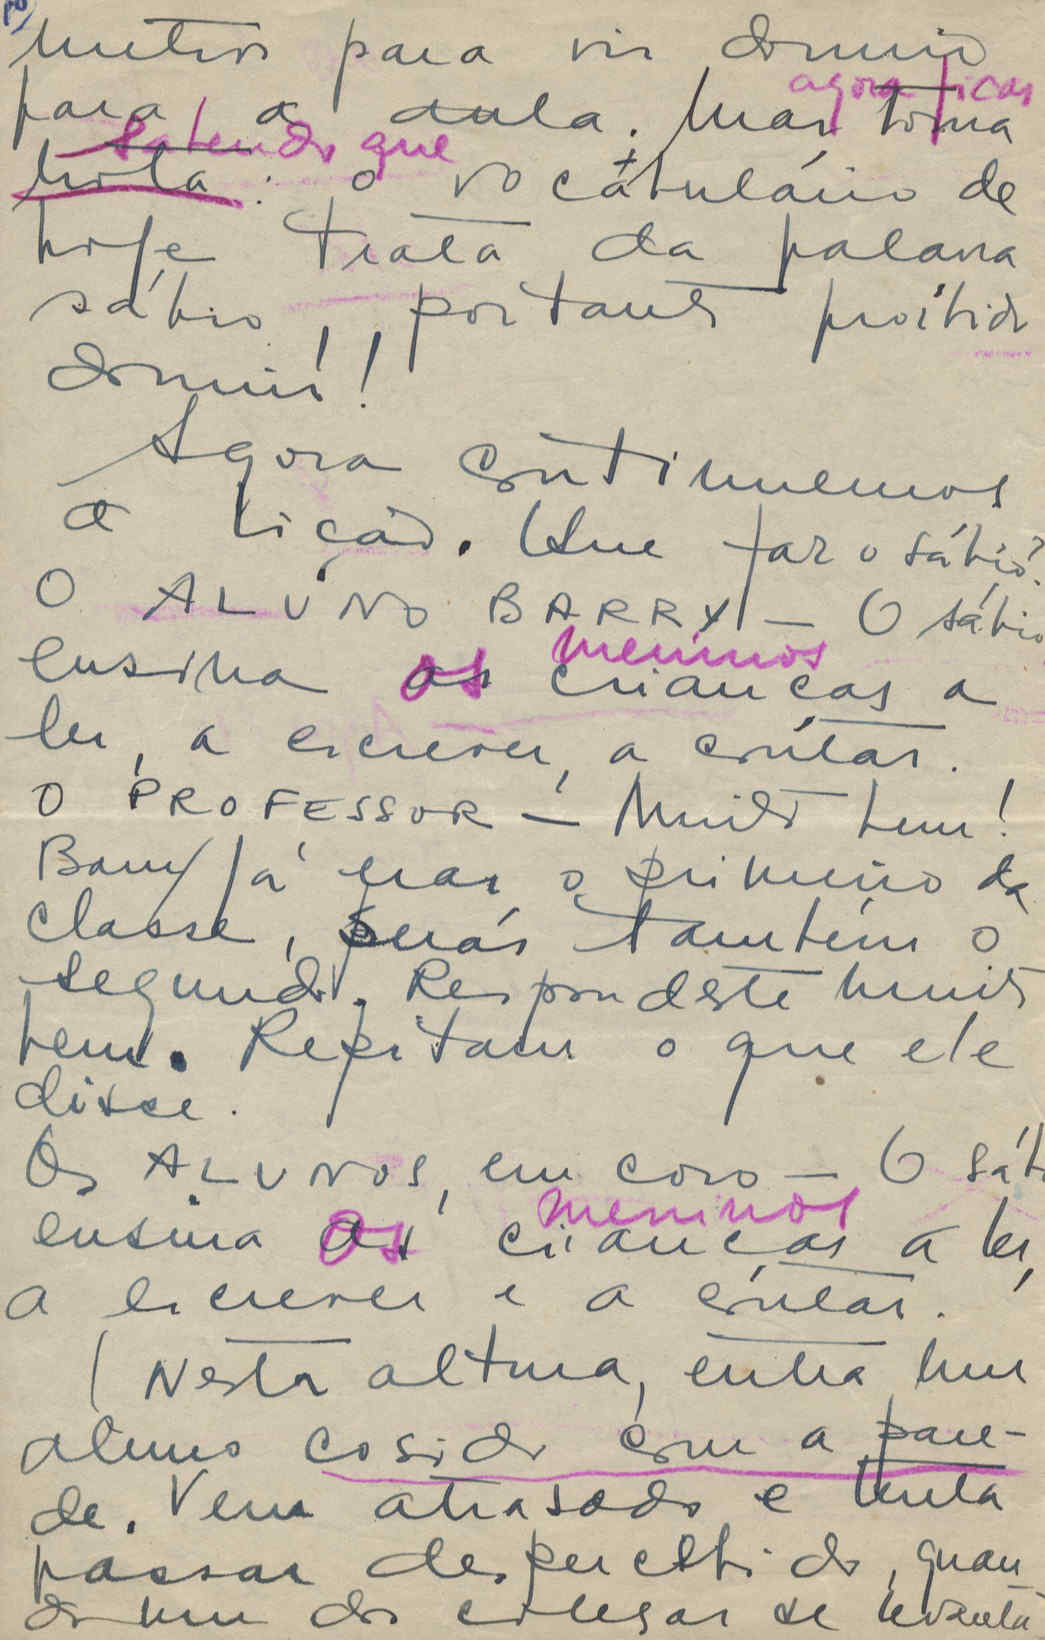 motivo para vir dormir
agora ficas
para a aula. Mas toma
sabendo que
nota: o vocabulário de
hoje trata da palavra
sábio, portanto proibido
dormir!
Agora continuemos
a lição. Que faz o sábio?
O ALUNO BARRY — O sábio
meninos
ensina os as crianças a
ler, a escrever, a contar.
O PROFESSOR — Muito bem!
Barry já eras o primeiro da
classe, serás também o
segundo. Respondeste muito
bem. Repitam o que ele
disse.
Os ALUNOS, em coro — O sáb
meninos
ensina os as crianças a ler,
a escrever e a contar.
(Nesta altura, entra um
aluno cosido com a pare-
de. Vem atrasado e tenta
passar despercebido, quan
do um dos colegas se levanta